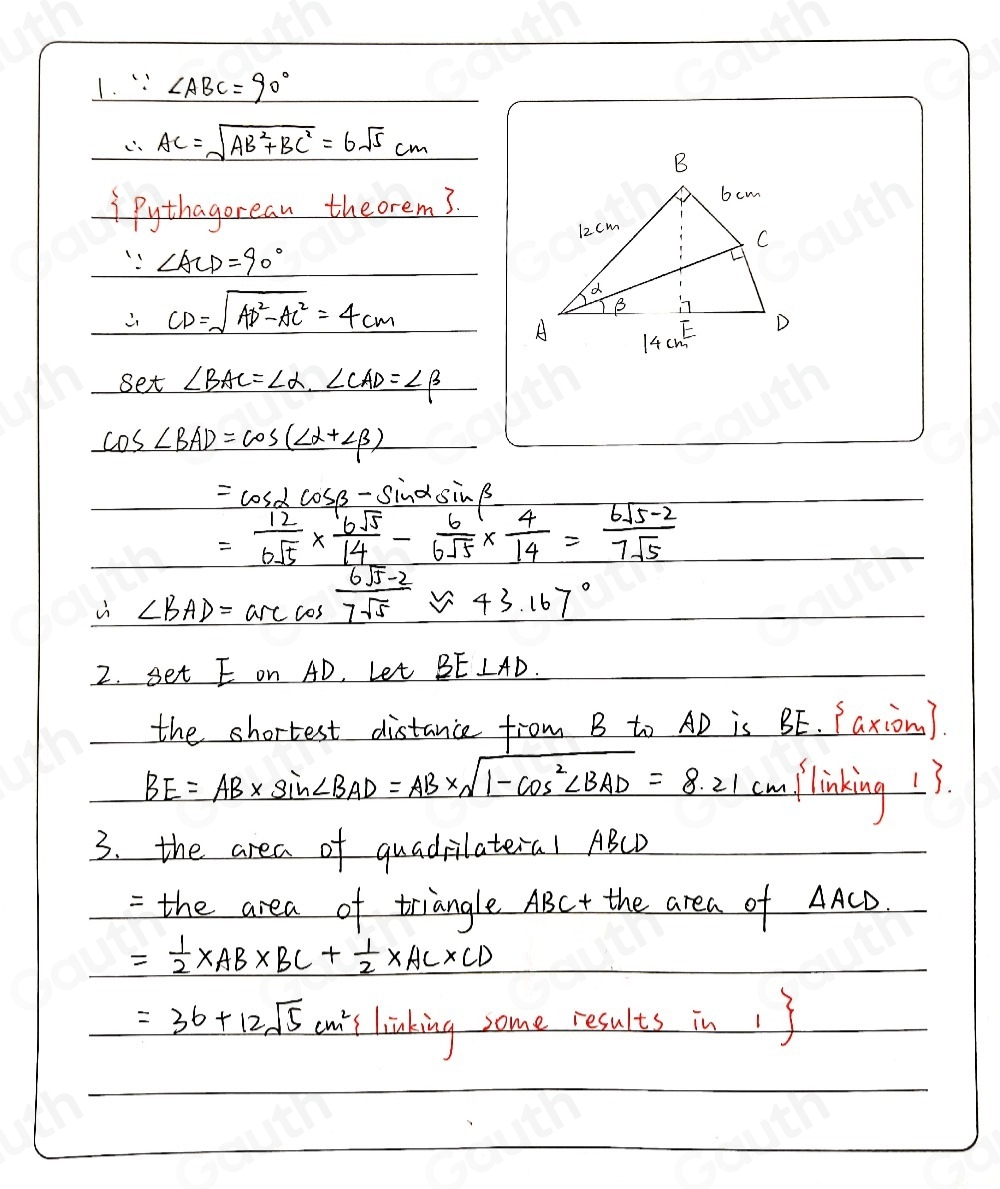 1. ∵ ∠ABC=90°
∴ AC=√(AB²+BC²) = 6√5 cm
{Pythagorean theorem}.
∵ ∠ACD=90°
∴ CD=√(AD²-AC²) = 4cm
set ∠BAC=∠α. ∠CAD=∠β
cos∠BAD=cos(∠α+∠β)
=cosα cosβ-sinα sinβ
= 12/6√5 × 6√5/14 - 6/6√5 × 4/14 = 6√5-2/7√5
∴ ∠BAD= arc cos 6√5-2/7√5 ≈ 43.167°
B
6cm
12cm
C
α
β
A
E
D
14cm
2. set E on AD. Let BE⊥AD.
the shortest distance from B to AD is BE. {axiom}.
BE= AB×sin∠BAD=AB×√(1-cos²∠BAD) = 8.21 cm. {linking 1}.
3. the area of quadrilateral ABCD
= the area of triangle ABC+ the area of ΔACD.
= 1/2 ×AB×BC+ 1/2 ×AC×CD
= 36+12√5 cm² {linking some results in 1}
Gauth